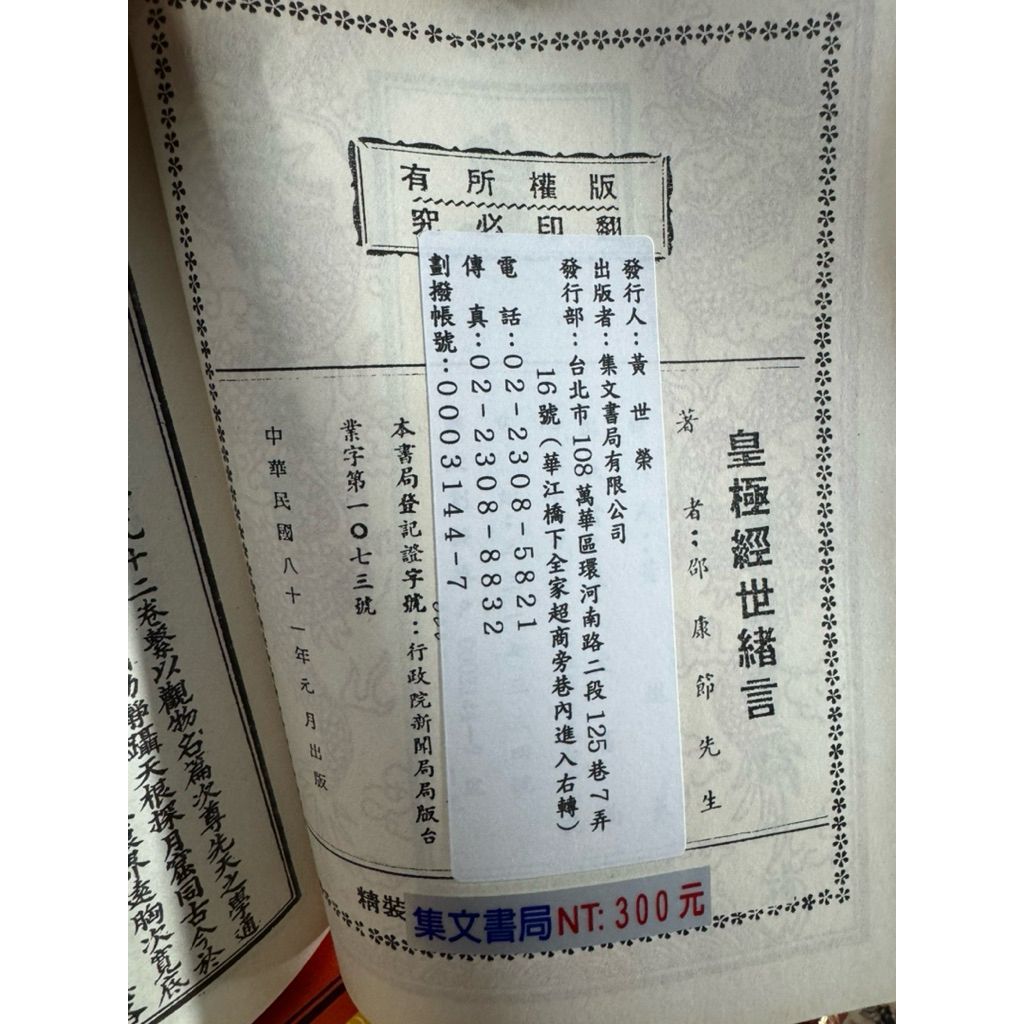 版權所有
翻印必究
皇極經世緒言
著者：邵康節先生
發行人：黃世榮
出版者：集文書局有限公司
發行部：台北市108萬華區環河南路二段125巷7弄
16號（華江橋下全家超商旁巷內進入右轉）
電話：02-2308-5821
傳真：02-2308-8832
劃撥帳號：0003144-7
本書局登記證字號：行政院新聞局局版台
業字第一〇七三號
中華民國八十一年元月出版
精裝
集文書局NT:300元
十二卷繫以觀物名篇次尊先天之學通
靜躡天根探月窟同古今於
遠胸次寬底